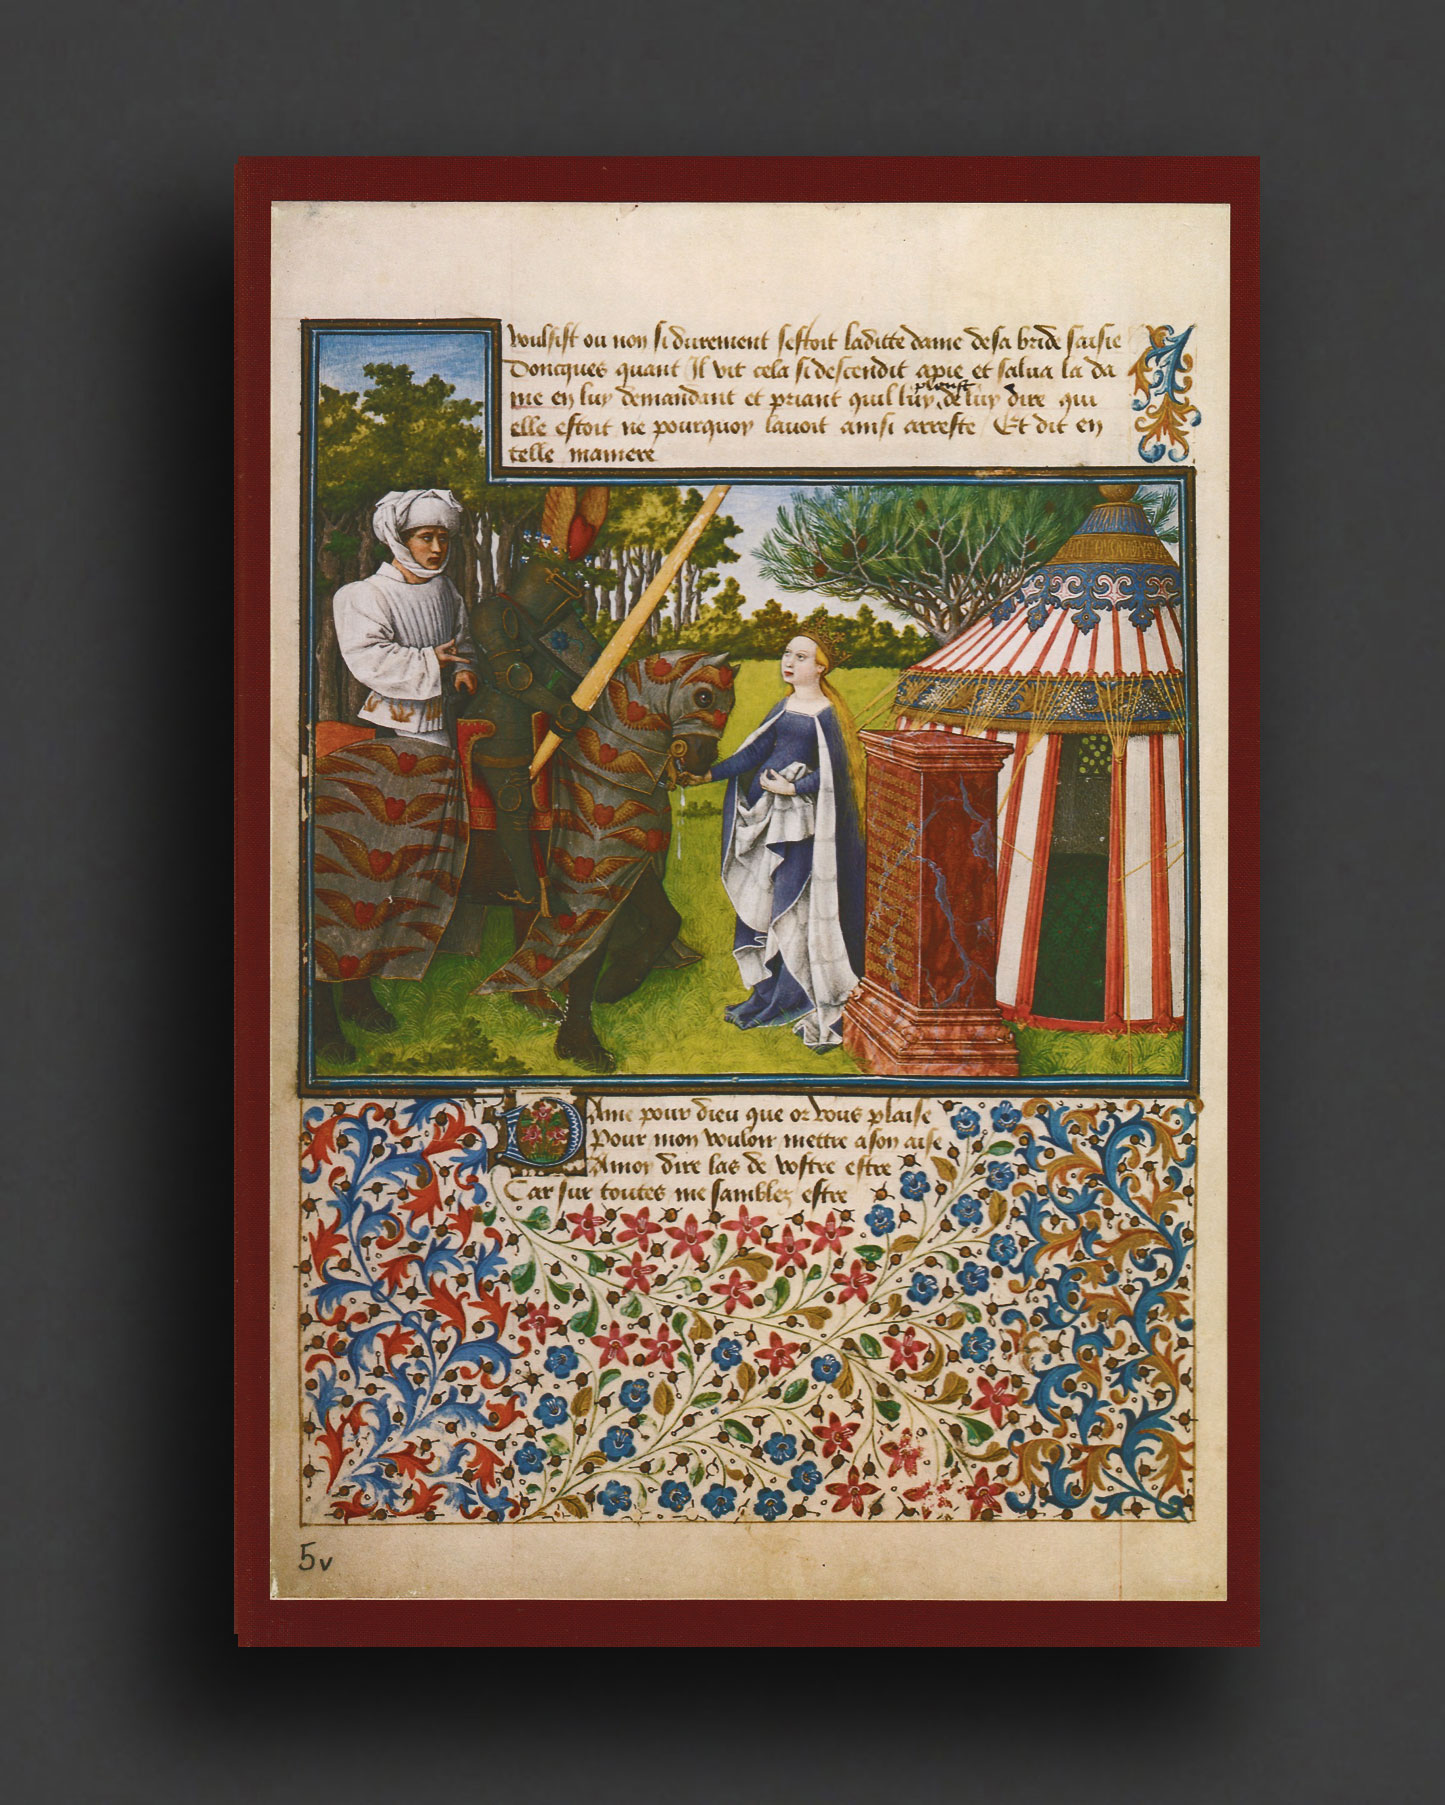 voulsist ou non si durement sestoit laditte dame de sa bride saisie
Doncques quant Il vit cela si descendit apie et salua la da
me en luy demandant et priant quil luy pleust de luy dire qui
elle estoit ne pourquoy lauoit ainsi arreste Et dit en
telle maniere
Dame pour dieu que or vous plaise
Pour mon vouloir mettre a son aise
A moy dire las de vostre estre
Car sur toutes me samblez estre
5v